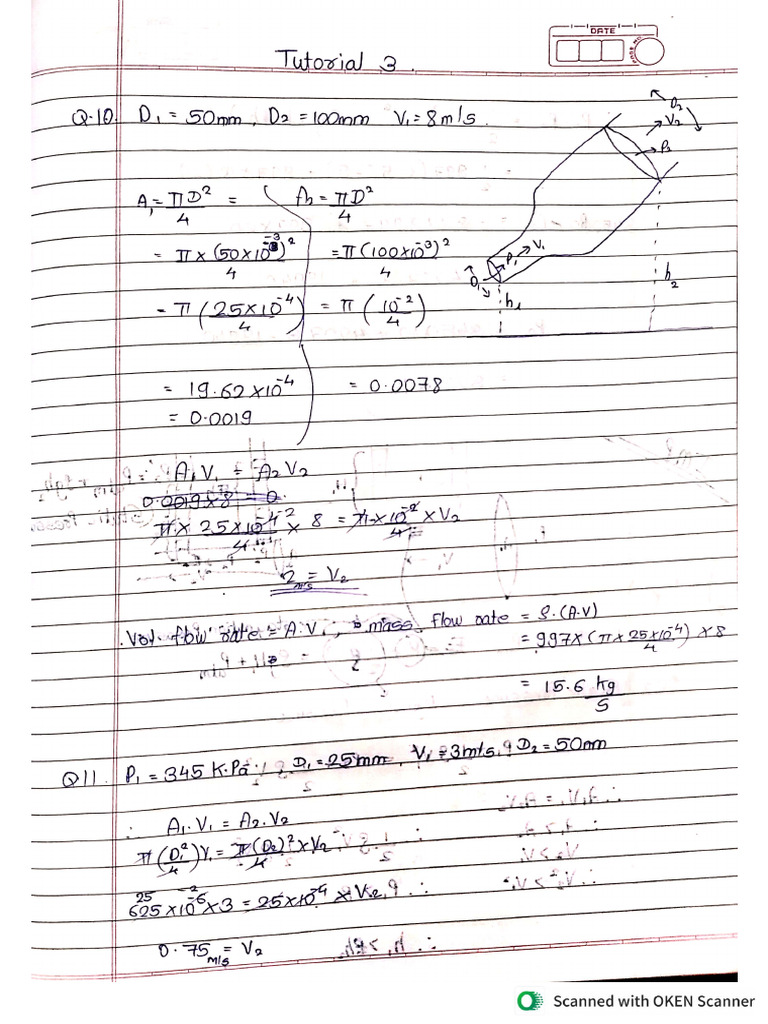 DATE
Tutorial 3.
Q.10. D₁ = 50mm, D₂ = 100mm V₁ = 8m/s.
D₂
V₂
P₂
A₁ = πD²/4 = A₂ = πD²/4
= π×(50×10⁻³)²/4 = π(100×10⁻³)²/4
V₁
P₁
D₁
h₁
h₂
= π(25×10⁻⁴/4) = π(10⁻²/4)
= 19.62×10⁻⁴ = 0.0078
= 0.0019
A₁V₁ = A₂V₂
0.0019×8 = 0
π × 25×10⁻⁴/4 × 8 = π×10⁻²/4 × V₂
2 m/s = V₂
Vol. flow rate = A.V, mass flow rate = ρ.(A.V)
= 997×(π×25×10⁻⁴/4)×8
= 15.6 kg/s
Q11. P₁ = 345 K.Pa, D₁ = 25mm, V₁ = 3m/s, D₂ = 50mm
∴ A₁.V₁ = A₂.V₂
π(D₁²/4)V₁ = π(D₂)²/4 × V₂
25 -2
625×10⁻⁶×3 = 25×10⁻⁴ × V₂
0.75 m/s = V₂
Scanned with OKEN Scanner